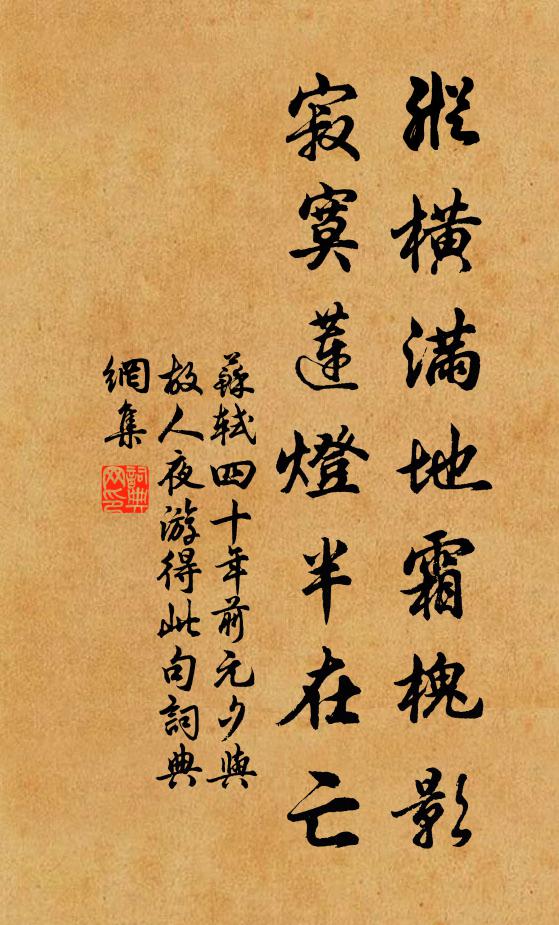 縱橫滿地霜槐影
寂寞蓮燈半在亡
蘇軾四十年前元夕與
故人夜游得此句詞典
網集
詞典
网印